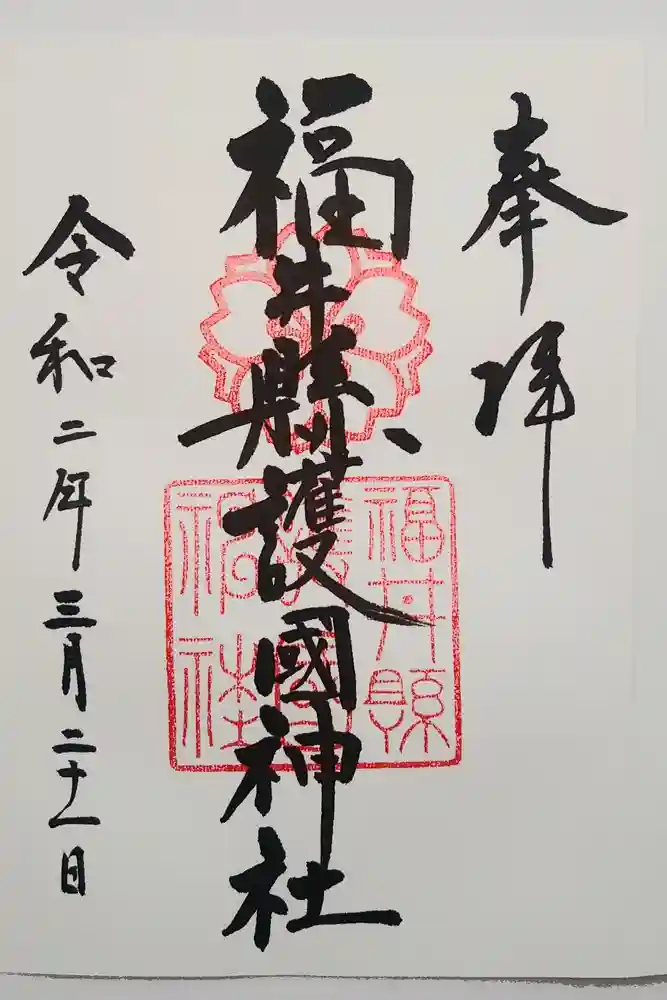 奉拝
福井縣護國神社
福井縣
護國
神社
令和二年三月二十一日